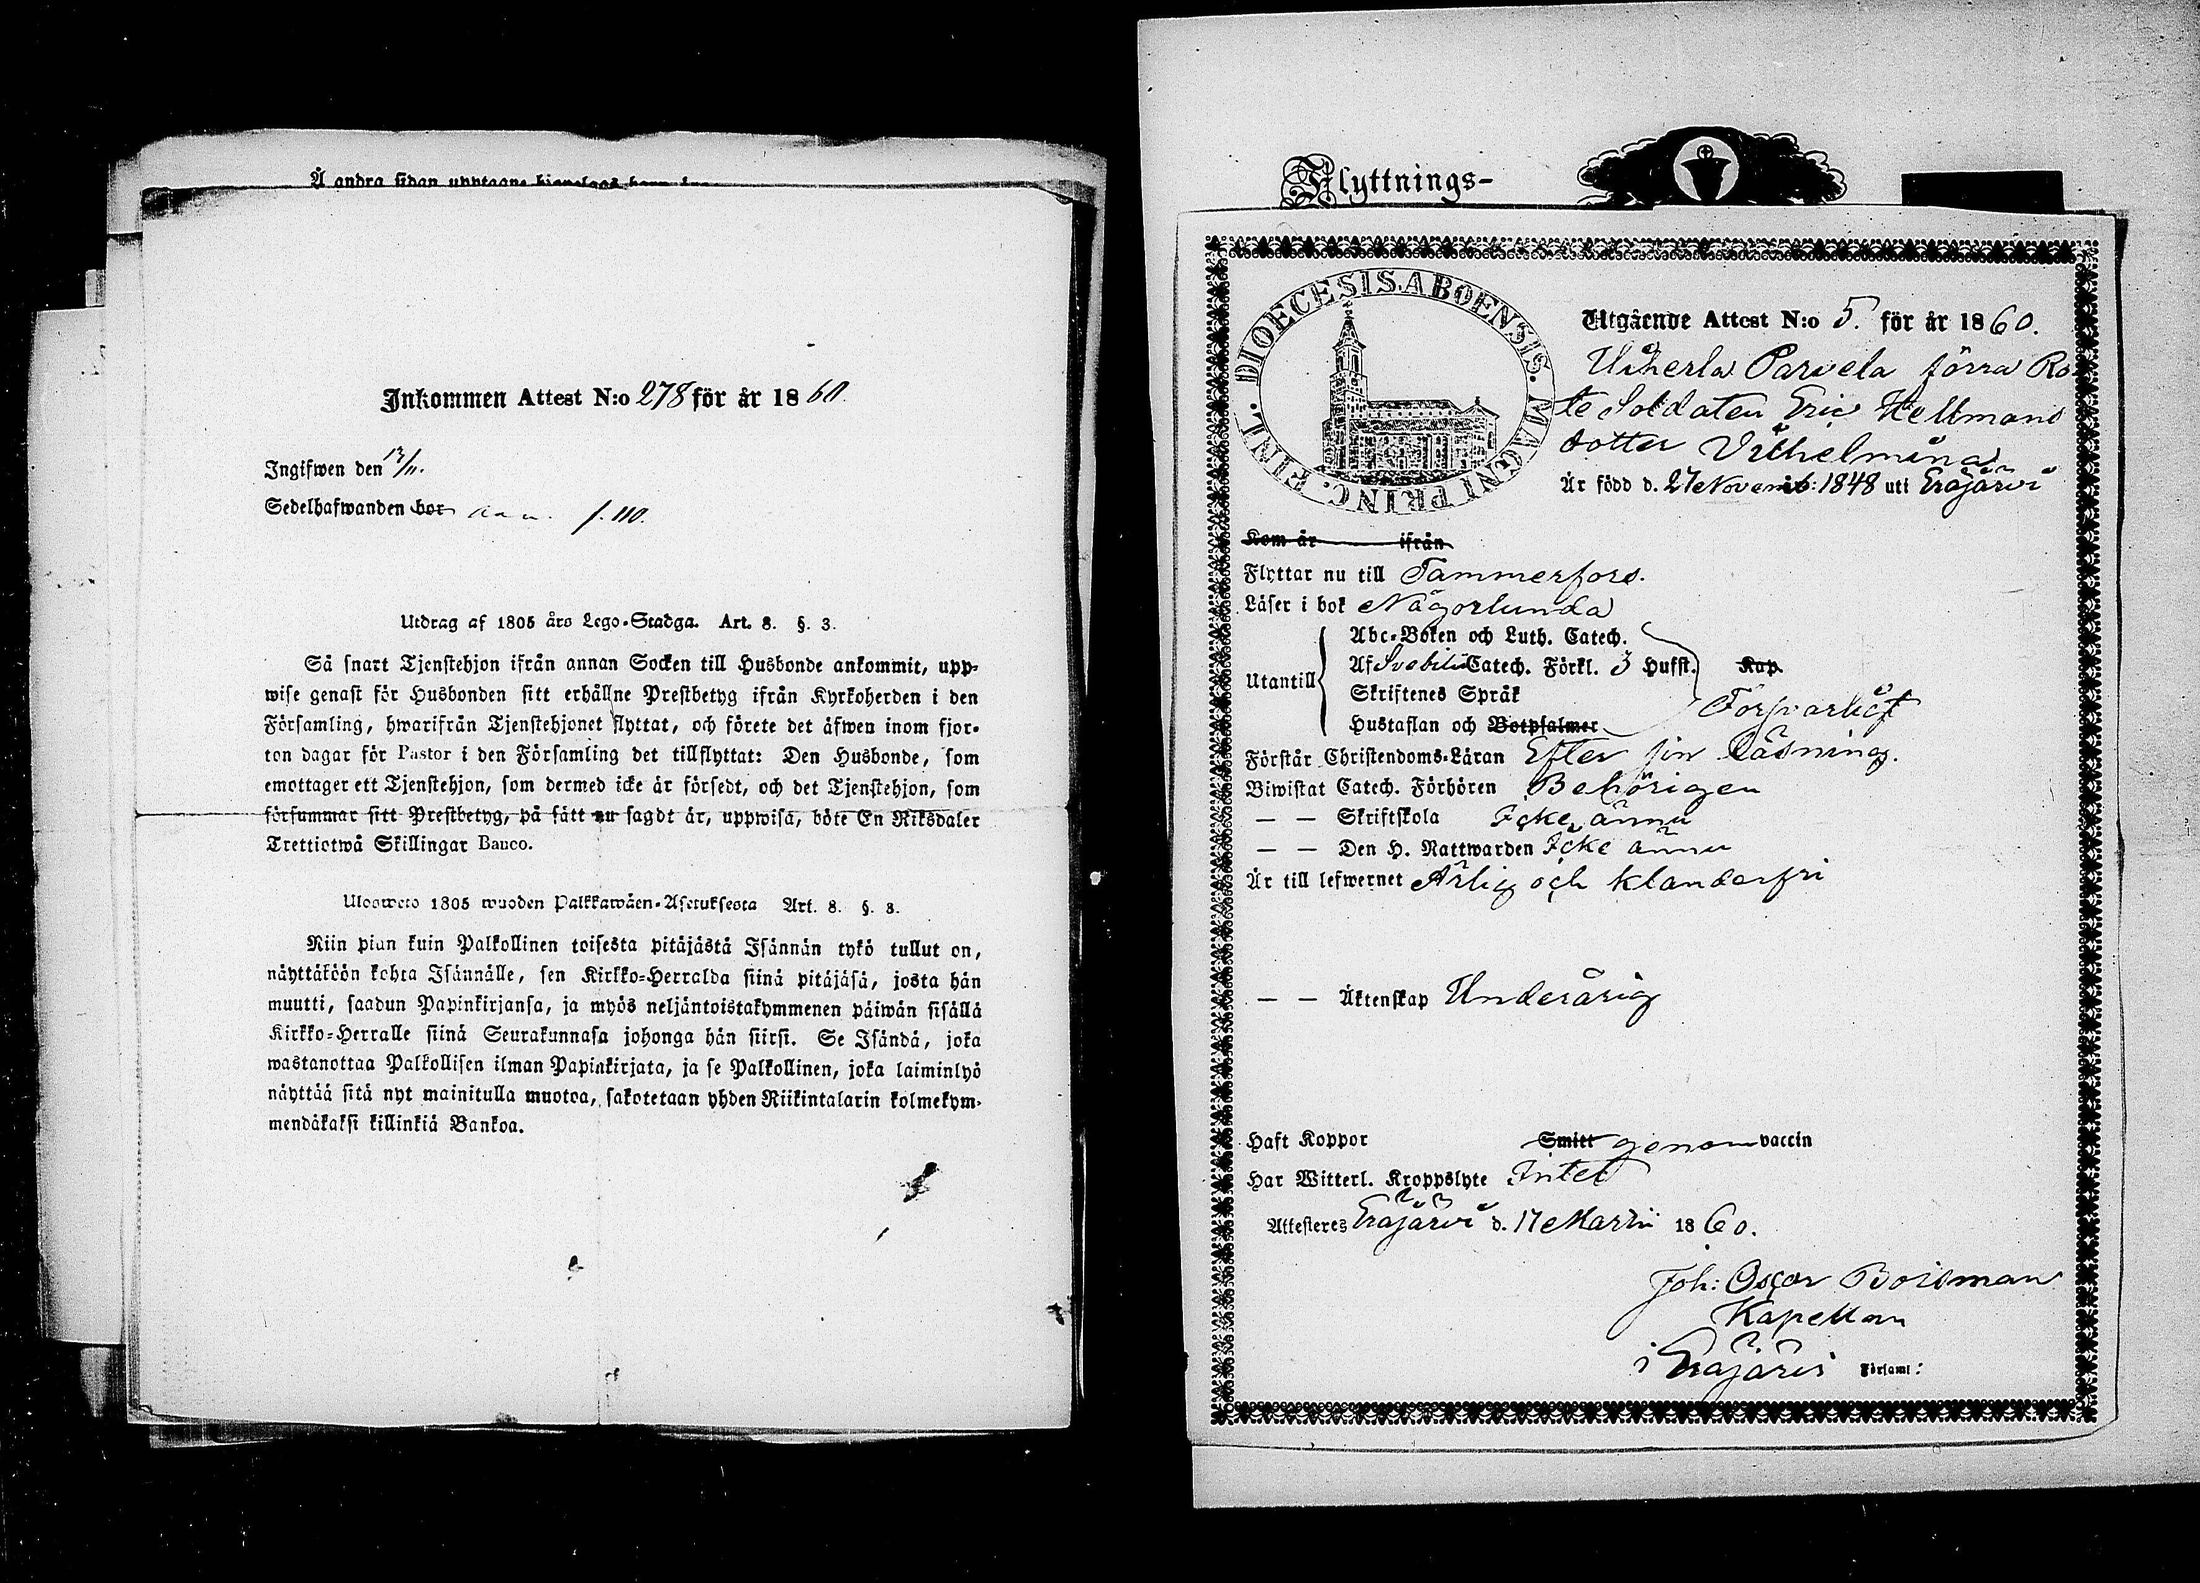 Å andra sidan upptagne
Inkommen Attest N:o 278 för år 1860.
Ingifwen den 13/11.
Sedelhafwanden bor f. 110.
Utdrag af 1805 års Lego-Stadga. Art. 8. §. 3.
Så snart Tjenstehjon ifrån annan Socken till Husbonde ankommit, upp-
wise genast för Husbonden sitt erhållne Prestbetyg ifrån Kyrkoherden i den
Församling, hwarifrån Tjenstehjonet flyttat, och förete det äfwen inom fjor-
ton dagar för Pastor i den Församling det tillflyttat: Den Husbonde, som
emottager ett Tjenstehjon, som dermed icke är försedt, och det Tjenstehjon, som
försummar sitt Prestbetyg, på sätt nu sagdt är, uppwisa, böte En Riksdaler
Trettiotwå Skillingar Banco.
Ulosweto 1805 wuoden Palkkawäen-Asetuksesta Art. 8. §. 3.
Niin pian kuin Palkollinen toisesta pitäjästä Isännän tykö tullut on,
näyttäköön kohta Isännälle, sen Kirkko-Herralda siinä pitäjäsä, josta hän
muutti, saadun Papinkirjansa, ja myös neljäntoistakymmenen päiwän sisällä
Kirkko-Herralle siinä Seurakunnasa johonga hän siirsi. Se Isändä, joka
wastanottaa Palkollisen ilman Papinkirjata, ja se Palkollinen, joka laiminlyö
näyttää sitä nyt mainitulla muotoa, sakotetaan yhden Riikintalarin kolmekym-
mendäkaksi killinkiä Bankoa.
Flyttnings-
DIOECESIS. ABOENSIS. MAGNI PRINC. FINL.
Utgående Attest N:o 5. för år 1860.
Uiherla Parvela förra Ro-
te Soldaten Eric Hellmans
dotter Vilhelmina
Är född d. 27 Novemb: 1848 uti Eräjärvi
Kom år ifrån
Flyttar nu till Tammerfors.
Läser i bok Någorlunda
Utantill
Abc-Boken och Luth. Catech.
Af Svebilii Catech. Förkl. 3 Hufst. Kap.
Skriftenes Språk
Hustaflan och Botpsalmer
Försvarligt
Förstår Christendoms-Läran Efter sin läsning.
Biwistat Catech. Förhören Behörigen
— — Skriftskola Icke ännu
— — Den H. Nattwarden Icke ännu
Är till lefwernet Ärlig och klanderfri
— — Äktenskap Underårig
Haft Koppor Smitt genom vaccin
Har Witterl. Kroppslyte Intet
Attesteres Eräjärvi d. 17 Martii 1860.
Joh: Oscar Boisman
Kapellan
i Eräjärvi Församl: